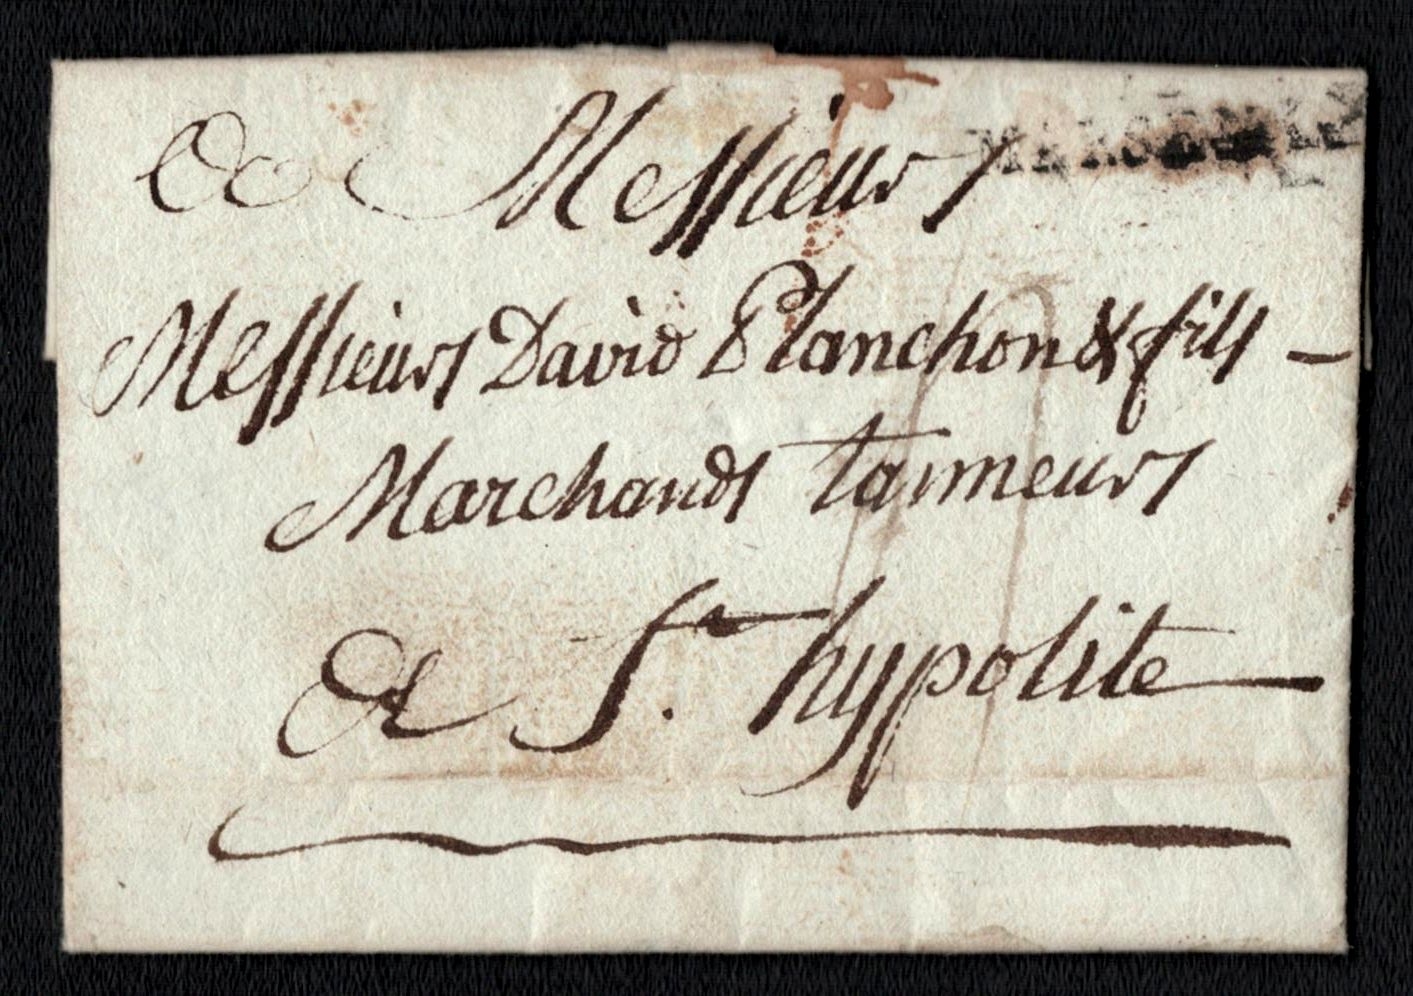 MARSEILLE
A Messieurs
Messieurs David Planchon & fils -
Marchands tanneurs
A St. hypolite